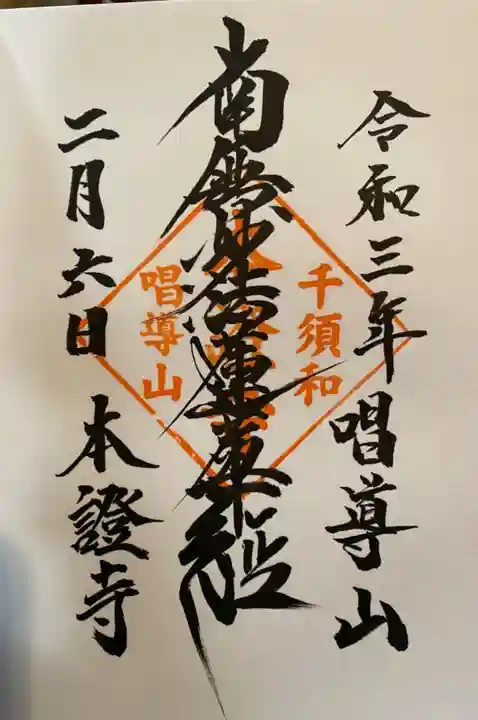 令和三年 唱導山
南無妙法蓮華経
二月六日 本證寺
千須和
唱導山